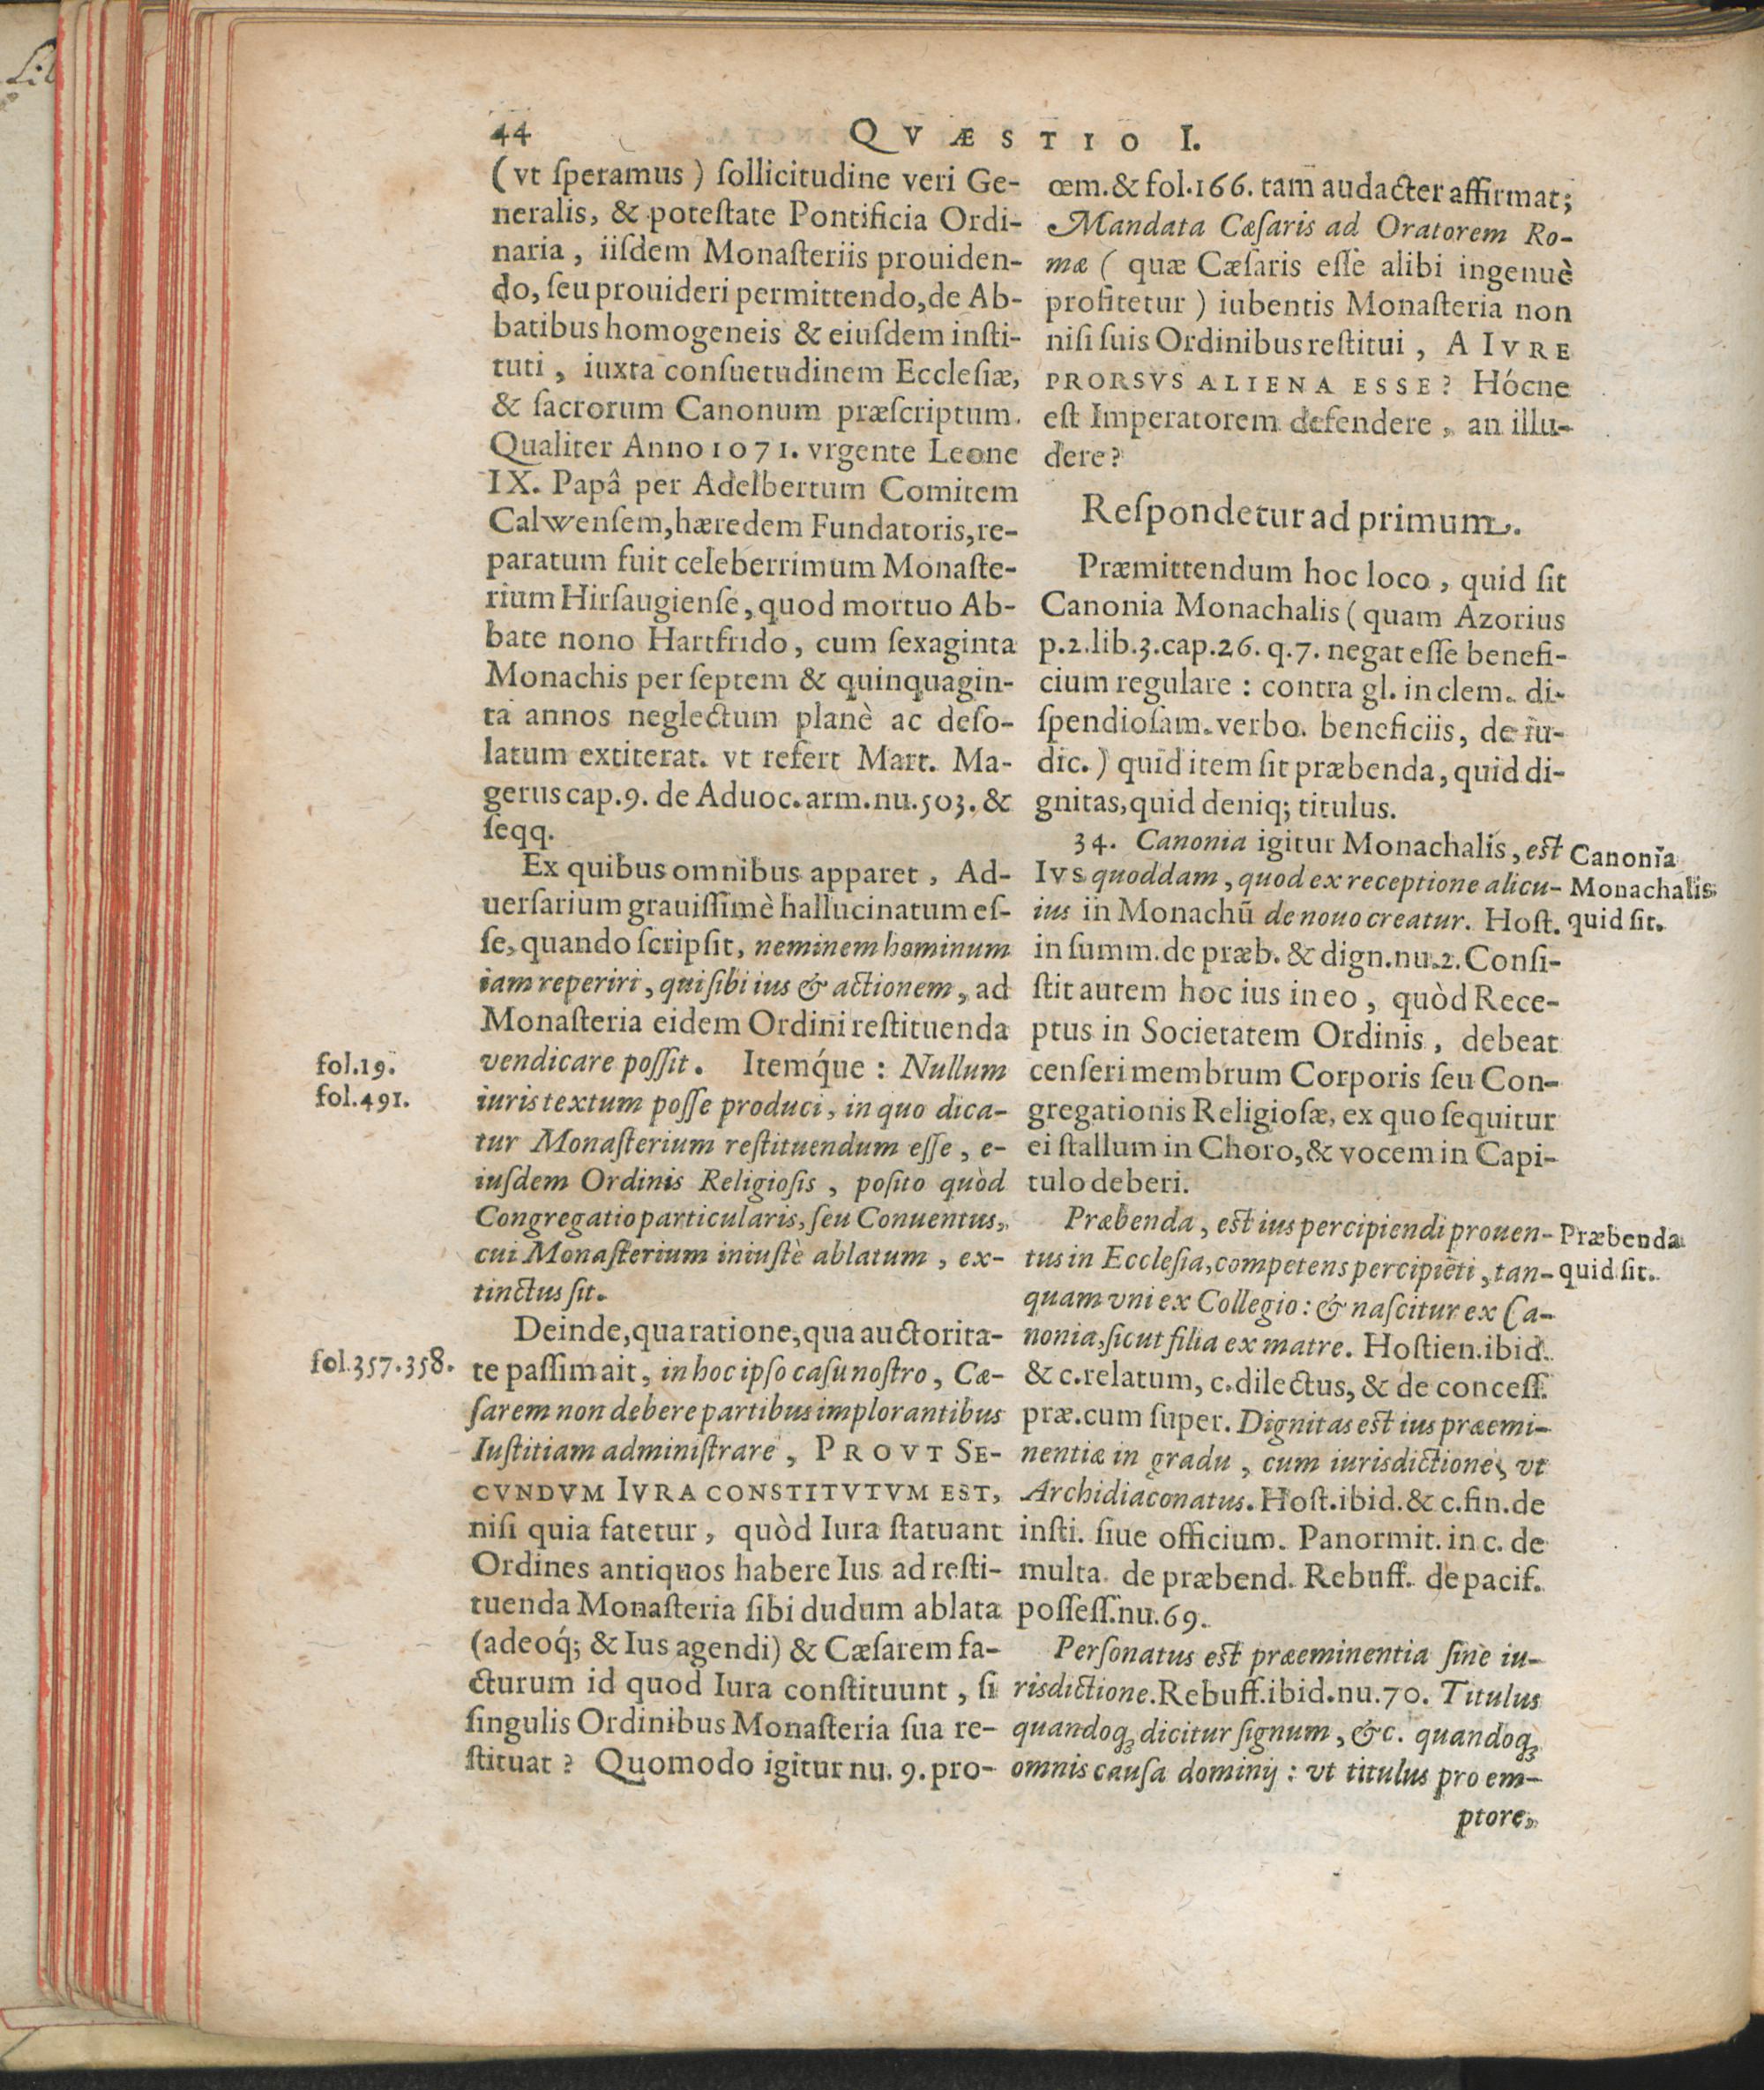 44
QVÆSTIO I.
(vt ſperamus) ſollicitudine veri Ge-
neralis, & poteſtate Pontificia Ordi-
naria, iiſdem Monaſteriis prouiden-
do, ſeu prouideri permittendo, de Ab-
batibus homogeneis & eiuſdem inſti-
tuti, iuxta conſuetudinem Eccleſiæ,
& ſacrorum Canonum præſcriptum.
Qualiter Anno 1071. vrgente Leone
IX. Papâ per Adelbertum Comitem
Calwenſem, hæredem Fundatoris, re-
paratum fuit celeberrimum Monaſte-
rium Hirſaugienſe, quod mortuo Ab-
bate nono Hartfrido, cum ſexaginta
Monachis per ſeptem & quinquagin-
ta annos neglectum planè ac deſo-
latum extiterat. vt refert Mart. Ma-
gerus cap. 9. de Aduoc. arm. nu. 503. &
ſeqq.
Ex quibus omnibus apparet, Ad-
uerſarium grauiſſimè hallucinatum eſ-
ſe, quando ſcripſit, neminem hominum
iam reperiri, qui ſibi ius & actionem, ad
Monaſteria eidem Ordini reſtituenda
fol. 19.
vendicare poſſit. Itemq́ue: Nullum
fol. 491.
iuris textum poſſe produci, in quo dica-
tur Monaſterium reſtituendum eſſe, e-
iuſdem Ordinis Religioſis, poſito quòd
Congregatio particularis, ſeu Conuentus,
cui Monaſterium iniuſtè ablatum, ex-
tinctus ſit.
Deinde, qua ratione, qua auctorita-
fol. 357. 358.
te paſſim ait, in hoc ipſo caſu noſtro, Cæ-
ſarem non debere partibus implorantibus
Iuſtitiam adminiſtrare, PROVT SE-
CVNDVM IVRA CONSTITVTVM EST,
niſi quia fatetur, quòd Iura ſtatuant
Ordines antiquos habere Ius ad reſti-
tuenda Monaſteria ſibi dudum ablata
(adeoq́; & Ius agendi) & Cæſarem fa-
cturum id quod Iura conſtituunt, ſi
ſingulis Ordinibus Monaſteria ſua re-
ſtituat? Quomodo igitur nu. 9. pro-
œm. & fol. 166. tam audacter affirmat;
Mandata Cæſaris ad Oratorem Ro-
mæ (quæ Cæſaris eſſe alibi ingenuè
profitetur) iubentis Monaſteria non
niſi ſuis Ordinibus reſtitui, A IVRE
PRORSVS ALIENA ESSE? Hócne
eſt Imperatorem defendere, an illu-
dere?
Reſpondetur ad primum.
Præmittendum hoc loco, quid ſit
Canonia Monachalis (quam Azorius
p. 2. lib. 3. cap. 26. q. 7. negat eſſe benefi-
cium regulare: contra gl. in clem. di-
ſpendioſam. verbo. beneficiis, de iu-
dic.) quid item ſit præbenda, quid di-
gnitas, quid deniq; titulus.
34. Canonia igitur Monachalis, eſt
IVS quoddam, quod ex receptione alicu-
ius in Monachũ de nouo creatur. Hoſt.
in ſumm. de præb. & dign. nu. 2. Conſi-
ſtit autem hoc ius in eo, quòd Rece-
ptus in Societatem Ordinis, debeat
cenſeri membrum Corporis ſeu Con-
gregationis Religioſæ, ex quo ſequitur
ei ſtallum in Choro, & vocem in Capi-
tulo deberi.
Canonia
Monachalis
quid ſit.
Præbenda, eſt ius percipiendi prouen-
tus in Eccleſia, competens percipiẽti, tan-
quam vni ex Collegio: & naſcitur ex Ca-
nonia, ſicut filia ex matre. Hoſtien. ibid.
& c. relatum, c. dilectus, & de conceſſ.
præ. cum ſuper. Dignitas eſt ius præemi-
nentiæ in gradu, cum iurisdictione, vt
Archidiaconatus. Hoſt. ibid. & c. fin. de
inſti. ſiue officium. Panormit. in c. de
multa. de præbend. Rebuff. de pacif.
poſſeſſ. nu. 69.
Præbenda
quid ſit.
Perſonatus eſt præeminentia ſine iu-
risdictione. Rebuff. ibid. nu. 70. Titulus
quandoq; dicitur ſignum, &c. quandoq;
omnis cauſa dominij: vt titulus pro em-
ptore,